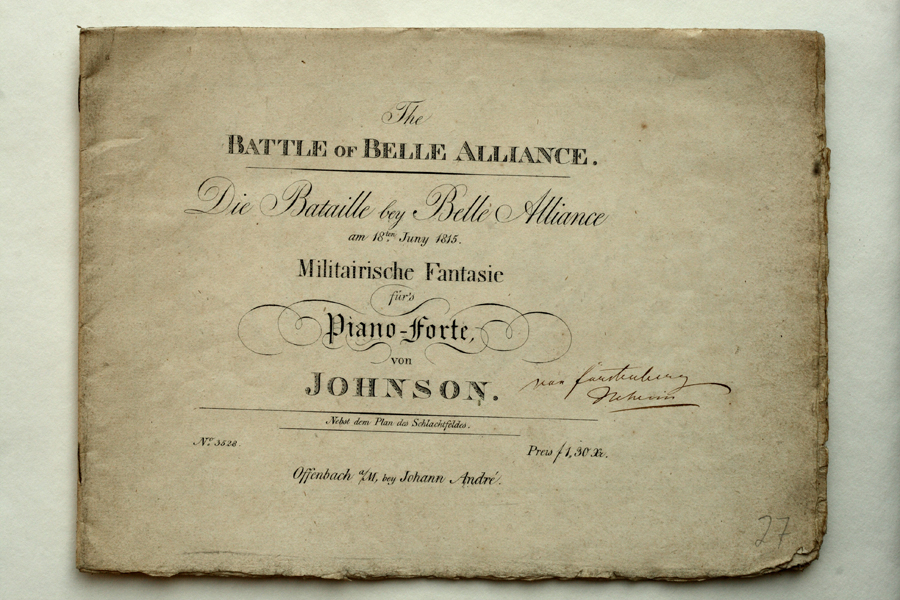 The
BATTLE OF BELLE ALLIANCE.
Die Bataille bey Belle Alliance
am 18ten Juny 1815.
Militairische Fantasie
für's
Piano-Forte,
von
JOHNSON.
von
Nebst dem Plan des Schlachtfeldes.
No. 3528.
Preis f 1, 30 Xr.
Offenbach a/M, bey Johann André.
27